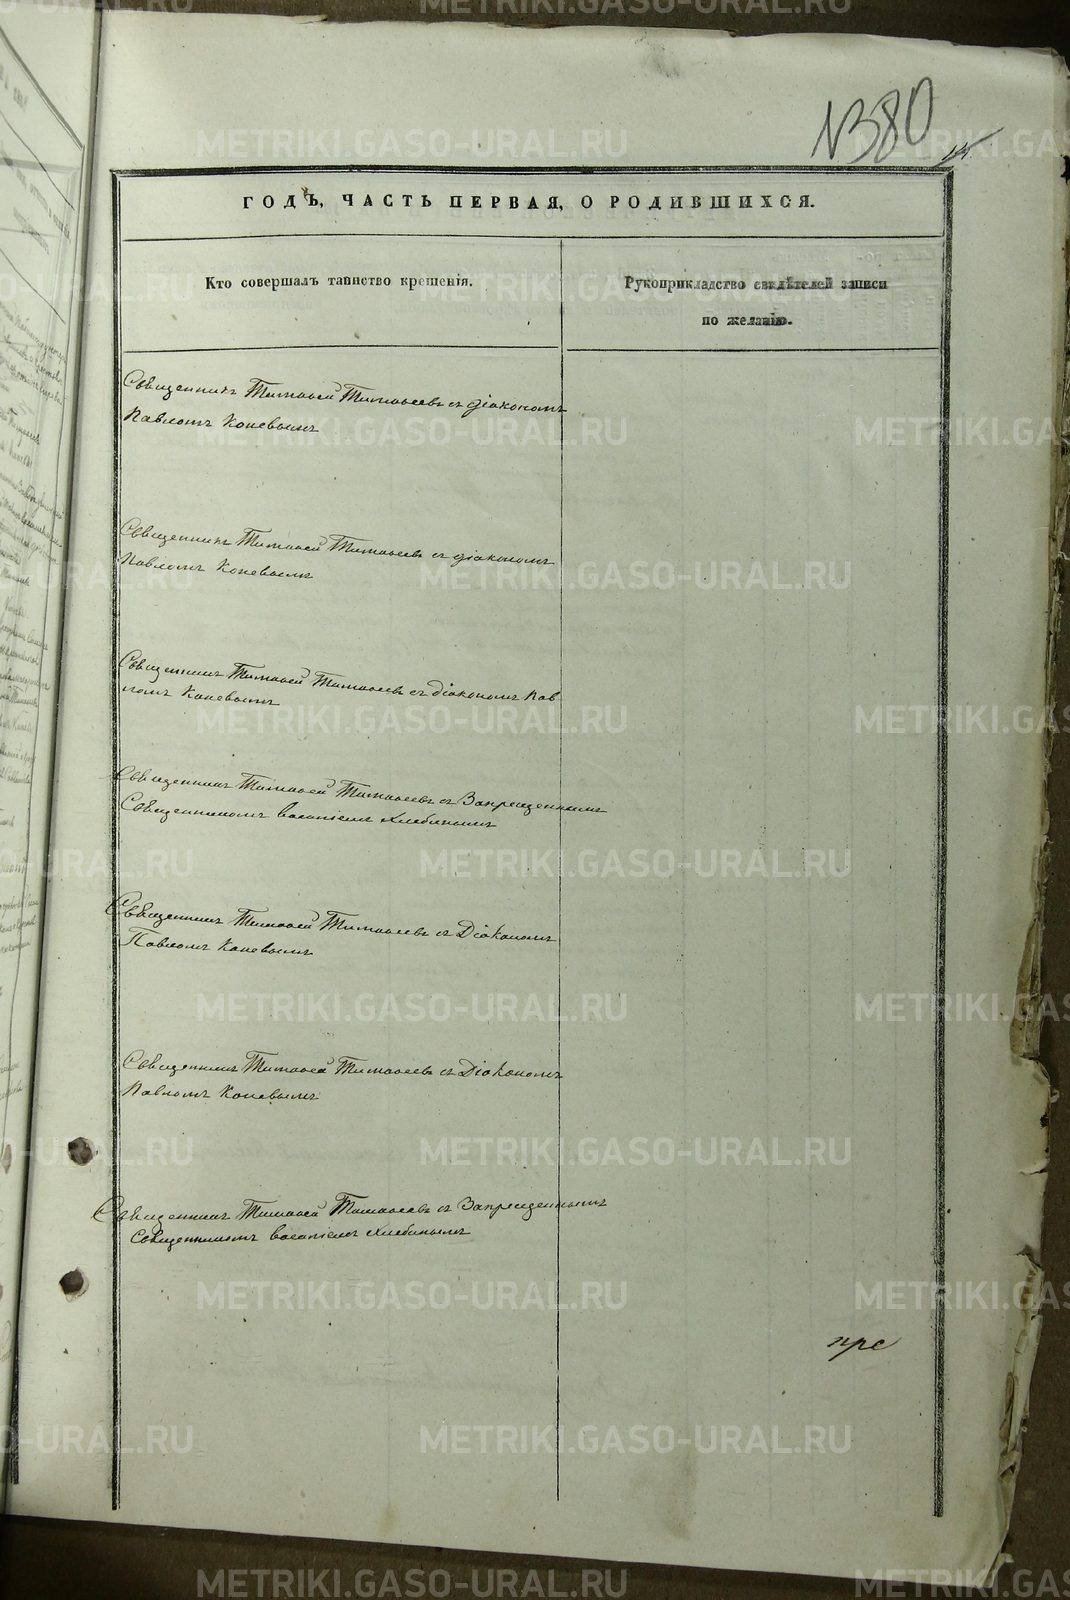 №380
ГОДЪ, ЧАСТЬ ПЕРВАЯ, О РОДИВШИХСЯ.
Кто совершалъ таинство крещенія.
Рукоприкладство свидѣтелей записи
по желанію.
Священникъ Тимоѳей Тимоѳеевъ съ діакономъ
Павломъ Коневымъ
Священникъ Тимоѳей Тимоѳеевъ съ діакономъ
Павломъ Коневымъ
Священникъ Тимоѳей Тимоѳеевъ съ діакономъ Пав
ломъ Коневымъ
Священникъ Тимоѳей Тимоѳеевъ съ Запрещеннымъ
Священникомъ
Священникъ Тимоѳей Тимоѳеевъ съ Діакономъ
Павломъ Коневымъ
Священникъ Тимоѳей Тимоѳеевъ съ Діакономъ
Павломъ Коневымъ
Священникъ Тимоѳей Тимоѳеевъ съ Запрещеннымъ
Священникомъ
пре
METRIKI.GASO-URAL.RU